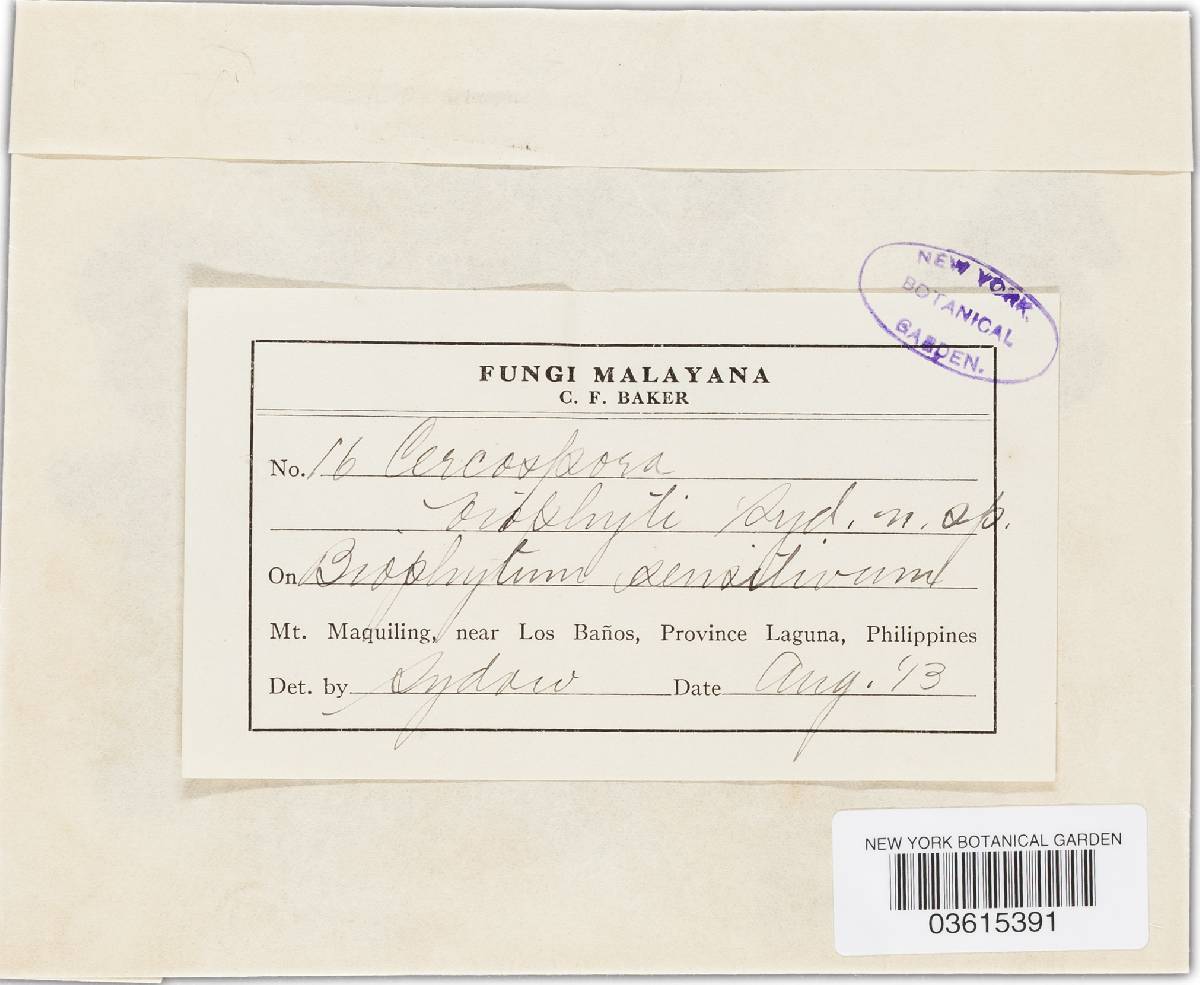 NEW YORK
BOTANICAL
GARDEN.
FUNGI MALAYANA
C. F. BAKER
No. 16 Cercospora
biophyti Syd. n. sp.
On Biophytum sensitivum
Mt. Maquiling, near Los Baños, Province Laguna, Philippines
Det. by Sydow Date Aug. '13
NEW YORK BOTANICAL GARDEN
03615391